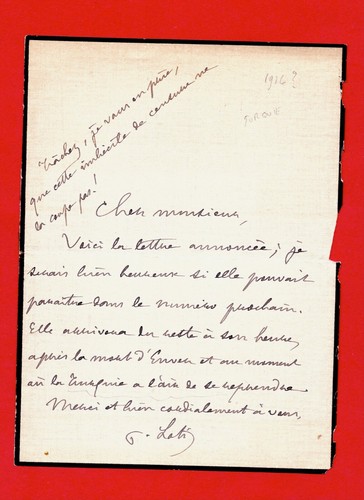 Tâchez, je vous en prie,
que cette imbécile de censure ne
la coupe pas !
1916 ?
TURQUIE
Cher monsieur,
Voici la lettre annoncée ; je
serais bien heureux si elle pouvait
paraître dans le numéro prochain.
Elle arrivera du reste à son heure,
après la mort d'Enver et au moment
où la Turquie a l'air de se reprendre
Merci et bien cordialement à vous,
P. Loti